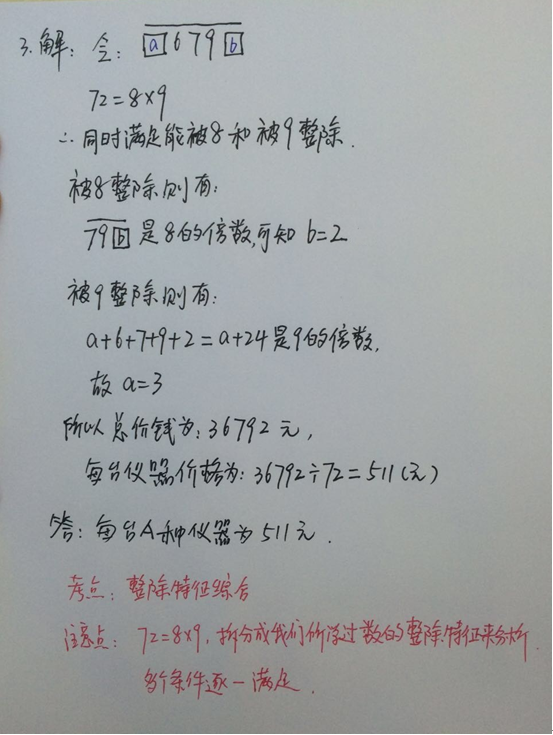 3.解：令：a679b
72=8×9
∴同时满足能被8和被9整除.
被8整除则有：
79b是8的倍数,可知 b=2
被9整除则有：
a+6+7+9+2=a+24是9的倍数,
故 a=3
所以总价钱为：36792元,
每台仪器价格为：36792÷72=511(元)
答：每台A种仪器为511元.
考点：整除特征综合
注意点：72=8×9,拆分成我们所学过数的整除特征来分析
多个条件逐一满足.